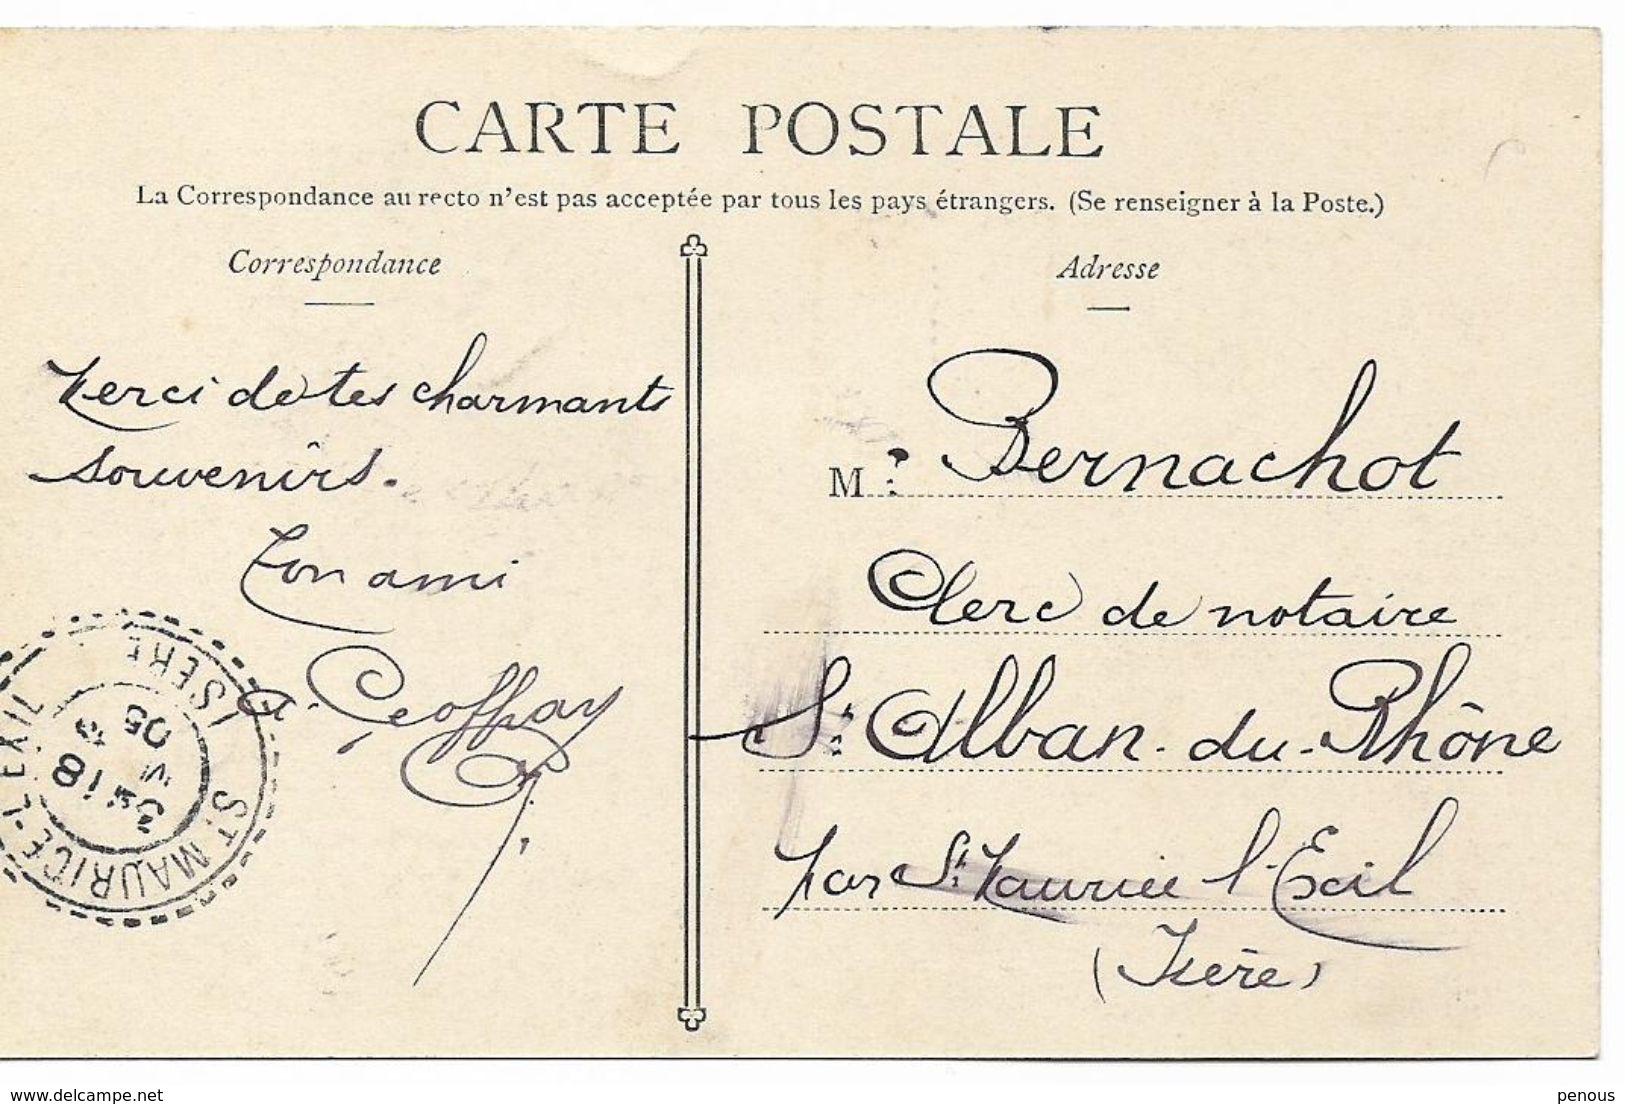 CARTE POSTALE
La Correspondance au recto n'est pas acceptée par tous les pays étrangers. (Se renseigner à la Poste.)
Correspondance
Merci de tes charmants
souvenirs.
Ton ami
a. Geoffray
ST MAURICE-L'EXIL
ISÈRE
18
05
Adresse
Mr Bernachot
Clerc de notaire
St Alban-du-Rhône
par St Maurice l'Exil
(Isère)
www.delcampe.net
penous